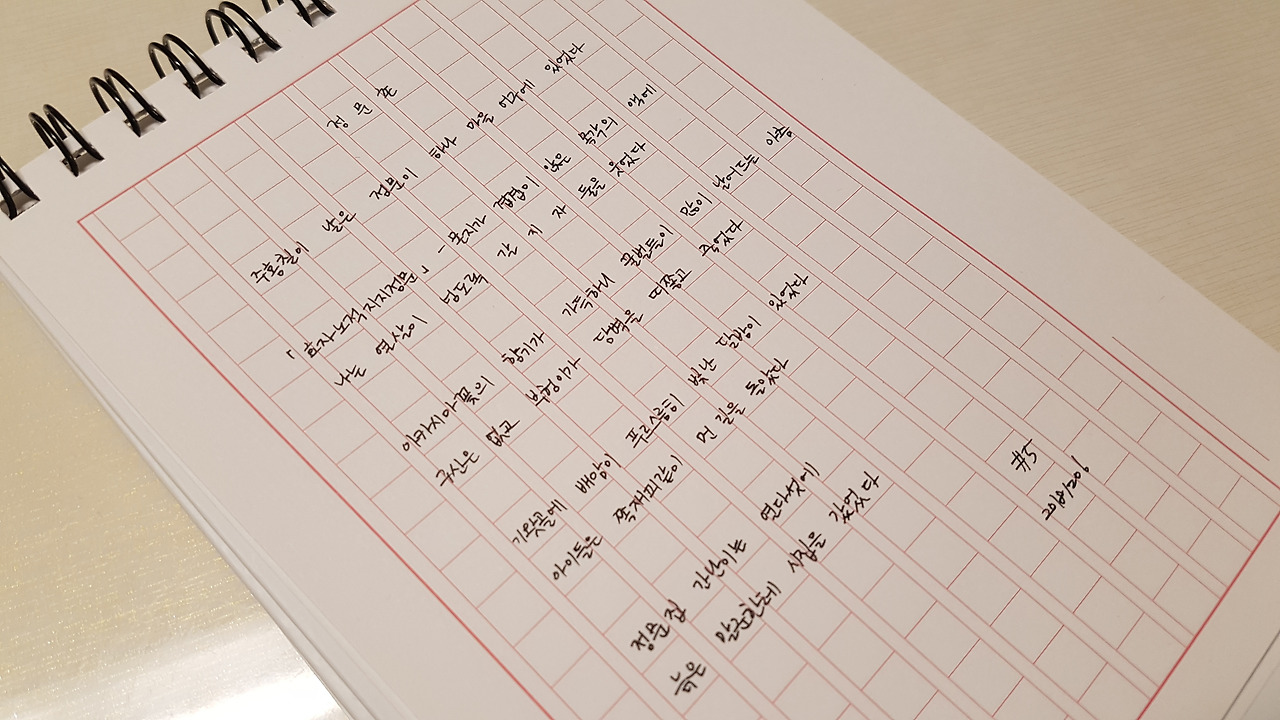 정 문 촌
주홍칠이 날은 정문이 하나 마을 어구에 있었다
「효자노적지지정문」 - 몬지가 겹겹이 앉은 목각의 액에
나는 열살이 넘도록 갈 지 자 둘을 웃었다
아카시아꽃의 향기가 가득하니 꿀벌들이 많이 날어드는 아츰
구신은 없고 부헝이가 담벽을 띠쫗고 죽었다
기왓골에 배암이 푸르스름히 빛난 달밤이 있었다
아이들은 쪽재피같이 먼 길을 돌았다
정문집 가난이는 열다섯에
늙은 말꾼한테 시집을 갔겄다
#5
20181206